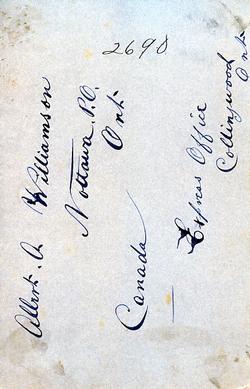 2690
Albert. A. Williamson
Nottawa. P.O.
Ont.
Canada
Express Office
Collingwood
Ont.